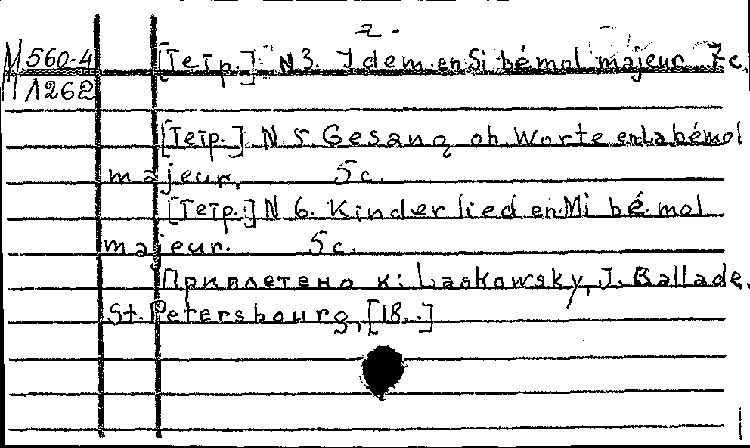 2.
М 560-4 [Тетр.] N 3. Idem en Si bémol majeur 7 c.
1262
[Тетр.] N 5 Gesang oh. Worte en La bémol
majeur. 5 c.
[Тетр.] N 6. Kinderlied en Mi bémol
majeur. 5 c.
Приплетено к: Laskowsky, J. Ballade.
St. Petersbourg, [18..]